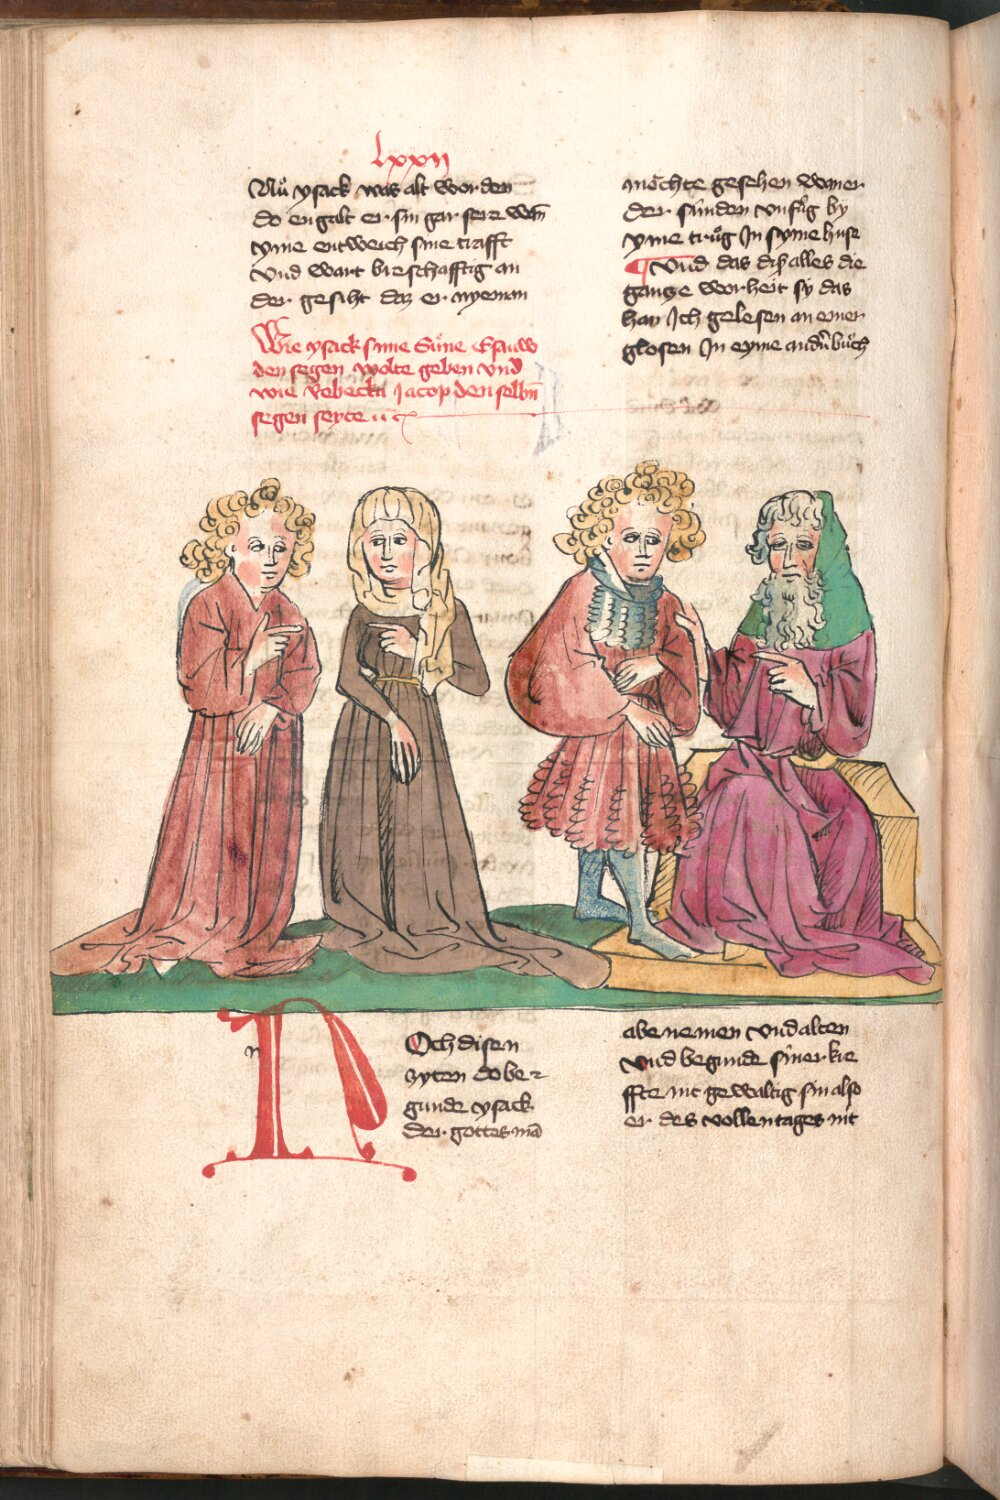 lxxij
Nů ysack was alt worden
do engalt er sin gar sere wañ
yme entweich sine crafft
Vnd wart bieschafftig an
der gesiht daz er nyeman
Wie ysack sinne Sůne Esauw
den segen wolte geben vnd
wie Rebecka Jacop den selbñ
segen seyte
möchte gesehen wañer
der sünden vnfůg by
yme trůg Jn syme huse
Vnd das dis alles die
gantze worheit sy das
han Jch gelesen an einer
glosen Jn eyme andñ bůch
n
NOch disen
zyten do be
gunde ysack
der gottes mā
abe nemen vnd alten
vnd begunde siner kre
ffte nit gewaltig sin also
er des vollentages nit